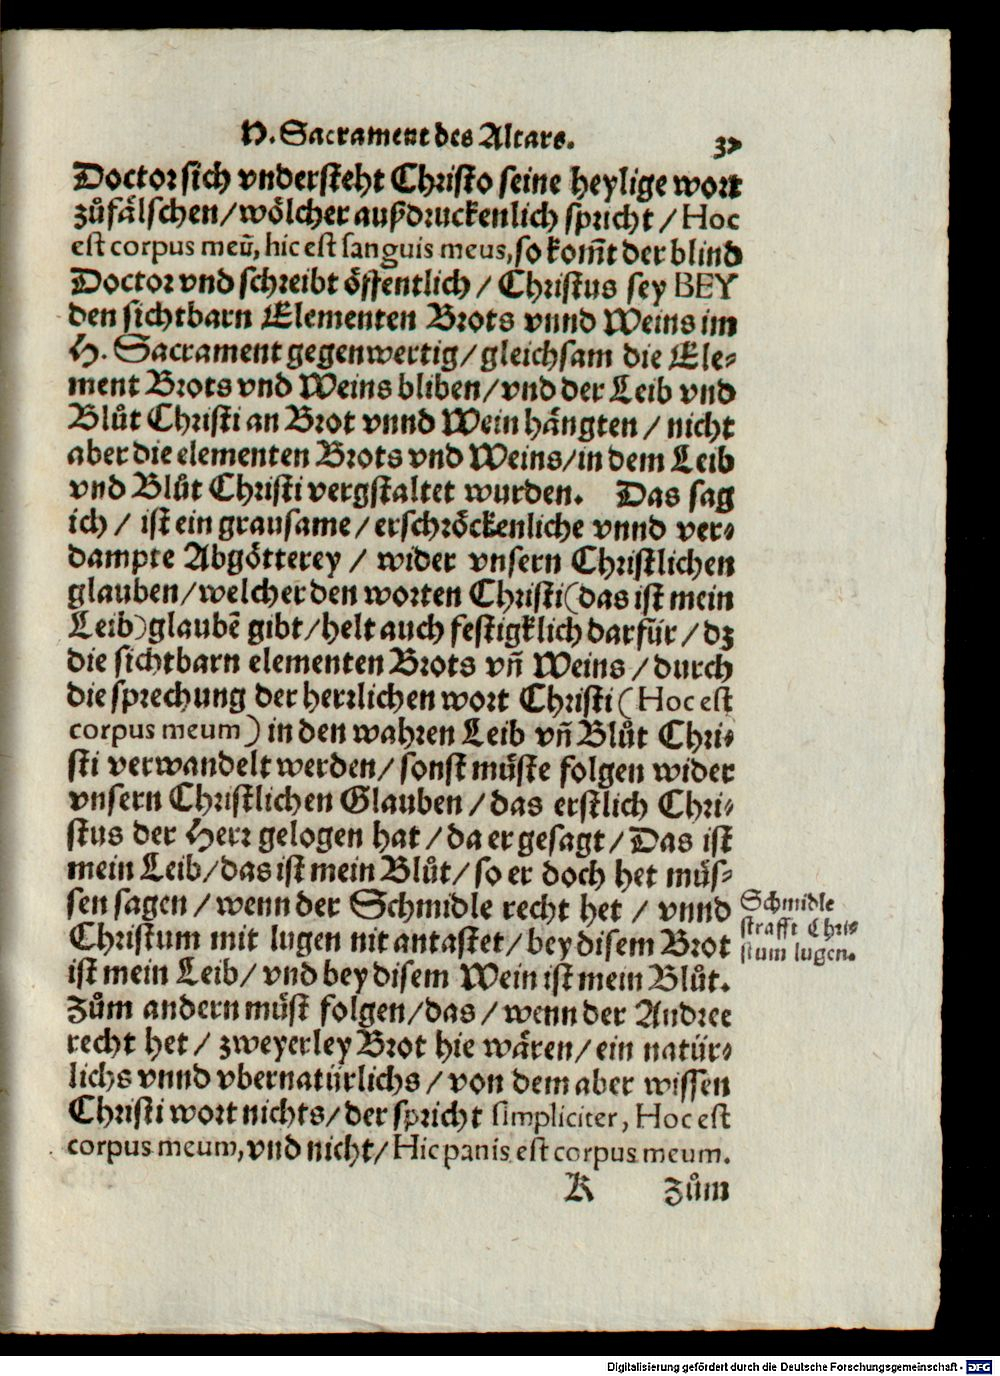 H. Sacrament des Altars. 37
Doctor sich vndersteht Christo seine heylige wort
zůfälschen/wölcher außdruckenlich spricht/Hoc
est corpus meũ, hic est sanguis meus, so kom̃t der blind
Doctor vnd schreibt öffentlich/Christus sey BEY
den sichtbarn Elementen Brots vnnd Weins im
H. Sacrament gegenwertig/gleichsam die Ele-
ment Brots vnd Weins bliben/vnd der Leib vnd
Blůt Christi an Brot vnnd Wein hängten/nicht
aber die elementen Brots vnd Weins/in dem Leib
vnd Blůt Christi vergstaltet wurden. Das sag
ich/ist ein grausame/erschröckenliche vnnd ver-
dampte Abgötterey/wider vnsern Christlichen
glauben/welcher den worten Christi(das ist mein
Leib)glaubẽ gibt/helt auch festigklich darfür/dz
die sichtbarn elementen Brots vñ Weins/durch
die sprechung der herrlichen wort Christi(Hoc est
corpus meum)in den wahren Leib vñ Blůt Chri-
sti verwandelt werden/sonst müste folgen wider
vnsern Christlichen Glauben/das erstlich Chri-
stus der Herr gelogen hat/da er gesagt/Das ist
mein Leib/das ist mein Blůt/so er doch het müs-
sen sagen/wenn der Schmidle recht het/vnnd
Christum mit lugen nit antastet/bey disem Brot
ist mein Leib/vnd bey disem Wein ist mein Blůt.
Zům andern müst folgen/das/wenn der Andree
recht het/zweyerley Brot hie wären/ein natür-
lichs vnnd vbernatürlichs/von dem aber wissen
Christi wort nichts/der spricht simpliciter, Hoc est
corpus meum, vnd nicht/Hic panis est corpus meum.
K Zům
Schmidle
strafft Chri-
stum lugen.
Digitalisierung gefördert durch die Deutsche Forschungsgemeinschaft - DFG